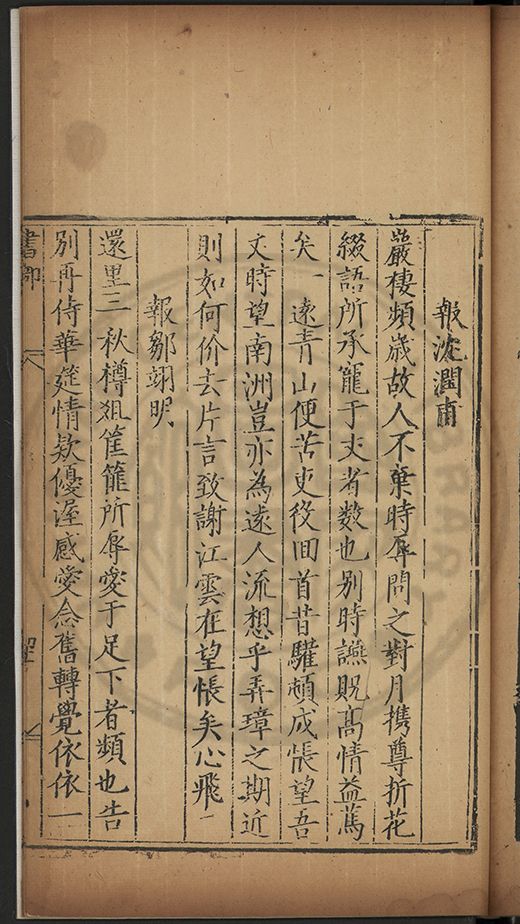 報沈潤甫
巖棲頻歲故人不棄時辱問之對月携尊折花
綴語所承寵于丈者数也别時讌貺髙情益蔫
矣一遠青山便苦吏役回首昔驩頓成悵望吾
丈時望南洲豈亦為遠人流想乎弄璋之期近
則如何价去片言致謝江雲在望悵矣心飛
報鄒翊明
還里三秋樽俎筐篚所辱愛于足下者頻也告
别再侍華筵情欵優渥感愛念舊轉覺依依一